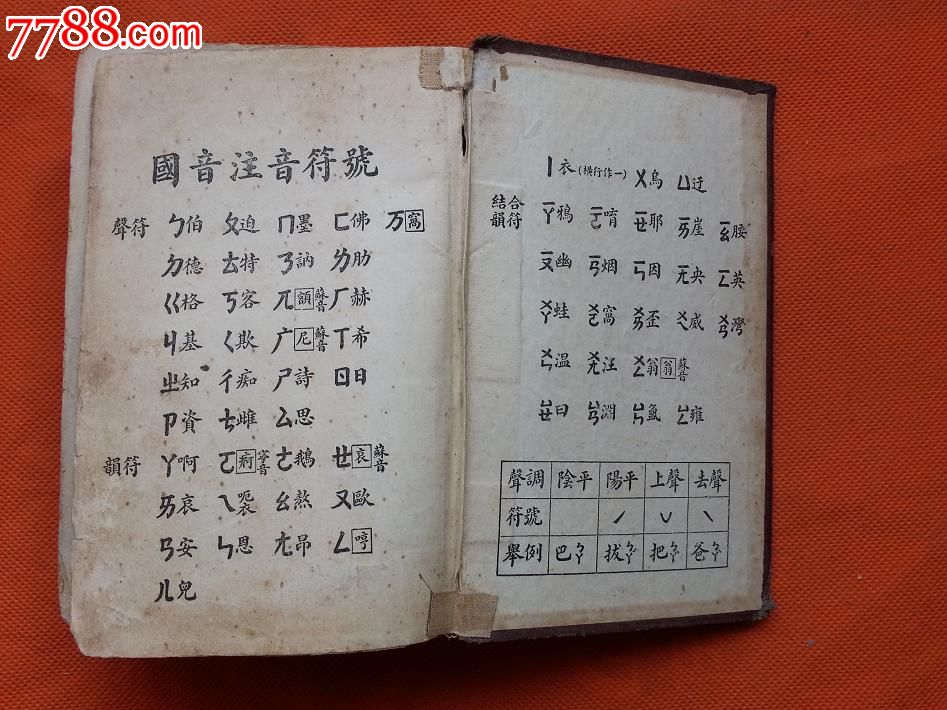 7788.com
國音注音符號
聲符 ㄅ伯 ㄆ迫 ㄇ墨 ㄈ佛 万窩
ㄉ德 ㄊ特 ㄋ訥 ㄌ肋
ㄍ格 ㄎ客 兀額蘇音 ㄏ赫
ㄐ基 ㄑ欺 广尼蘇音 ㄒ希
ㄓ知 ㄔ痴 ㄕ詩 ㄖ日
ㄗ資 ㄘ雌 ㄙ思
韻符 ㄚ啊 ㄛ痾寧音 ㄜ鵝 ㄝ哀蘇音
ㄞ哀 ㄟ呃衣 ㄠ熬 ㄡ歐
ㄢ安 ㄣ恩 ㄤ昂 ㄥ哼
ㄦ兒
丨衣(橫行作一) ㄨ烏 ㄩ迂
結合韻符 ㄧㄚ鴉 ㄧㄛ唷 ㄧㄝ耶 ㄧㄞ崖 ㄧㄠ腰
ㄧㄡ幽 ㄧㄢ烟 ㄧㄣ因 ㄧㄤ央 ㄧㄥ英
ㄨㄚ蛙 ㄨㄛ窩 ㄨㄞ歪 ㄨㄟ威 ㄨㄢ灣
ㄨㄣ温 ㄨㄤ汪 ㄨㄥ翁翁蘇音
ㄩㄝ曰 ㄩㄢ淵 ㄩㄣ氳 ㄩㄥ雍
聲調 陰平 陽平 上聲 去聲
符號 ˊ ˇ ˋ
舉例 巴ㄅㄚ 拔ㄅㄚˊ 把ㄅㄚˇ 爸ㄅㄚˋ